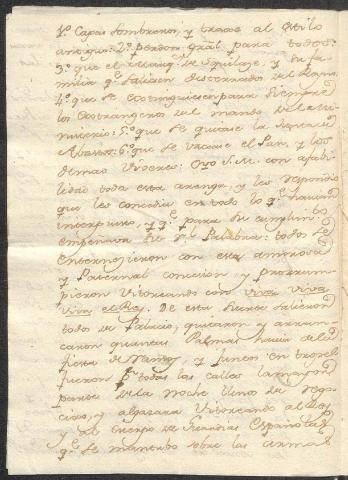 1º Capas Sombreros, y traxe al estilo
antiguo: 2º perdon Gral para todos:
3º que el Marqˢ de Squilaze, y su fa-
milia qᵉ saliesen desterrados del Reyno,
4º que se extinguiesen para siempre
los Extrangeros del mando del Mi-
nisterio: 5º que se quitase la Junta de
Abastos: 6º que se vaxase el Pan, y los
demas Viveres: Oyo S. M. con afabi-
lidad toda esta arenga, y les respondio
que les concedia en todo lo qᵉ havian
interpuesto, y qᵉ para su cumplimᵗᵒ
empeñava su Rˡ Palabra: todos se
enternezieron con esta amorosa
y Paternal concesion, y prorrum-
pieron Vitoreando con viva viva
viva el Rey. De esta suerte salieron
todos de Palacio, quitaron y arran-
caron quantas Palmas havia de la
fiesta de Ramos, y juntos en tropel
fueron pʳ todas las calles la mayor
parte de la noche llenos de rego-
cixo, y algazara Vitoreando al Rey
y al cuerpo de Guardias Españolas
qᵉ se mantubo sobre las armas